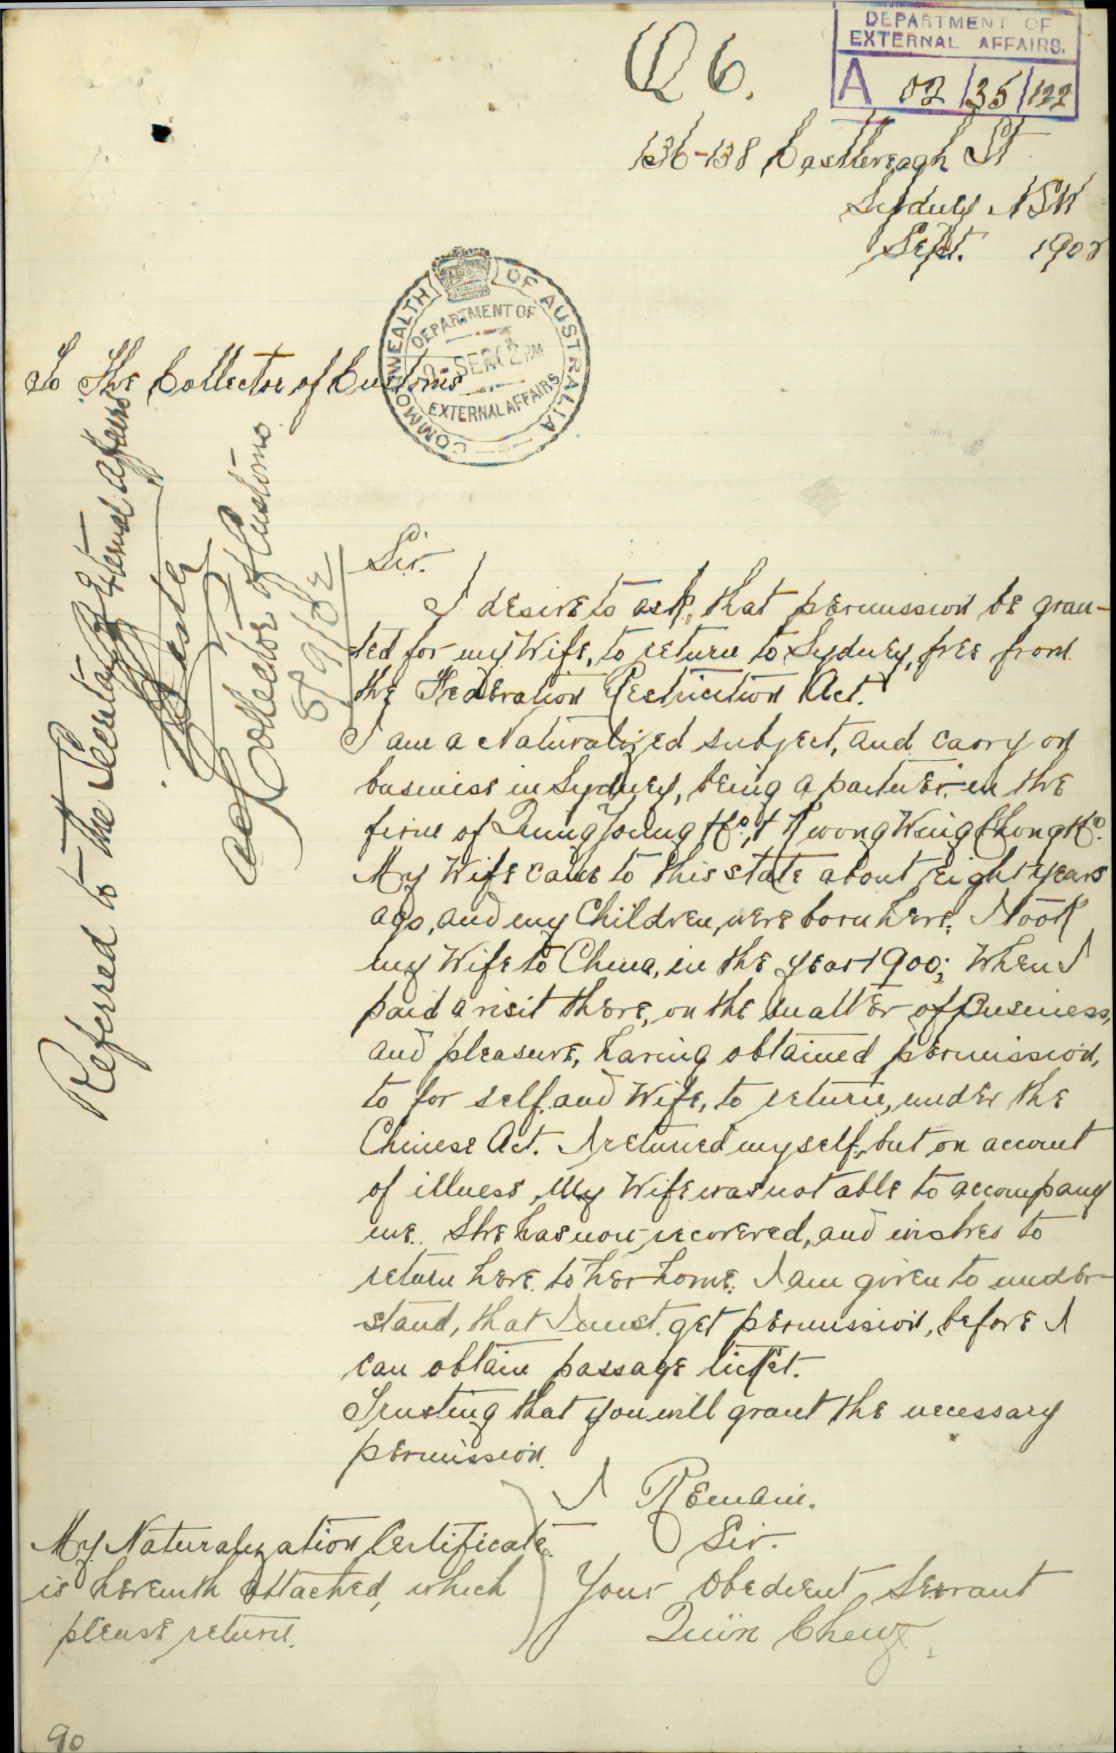 Q 6.
DEPARTMENT OF
EXTERNAL AFFAIRS.
A 02/35/122
136-138 Castlereagh St
Sydney NSW
Sept. 1902
COMMONWEALTH OF AUSTRALIA
DEPARTMENT OF
EXTERNAL AFFAIRS
To The Collector of Customs
Referred to the Secretary of External Affairs
Collector of Customs
5/9/02
Sir.
I desire to ask, that permission be gran-
ted for my Wife, to return to Sydney, free from
the Federation Restriction Act.
I am a Naturalized subject, and carry on
business in Sydney, being a partner in the
firm of Quing Young & Co, & Kwong Wing Chong & Co.
My Wife came to this state about eight years
ago, and my Children, were born here. I took
my Wife to China, in the year 1900; When I
paid a visit there, on the matter of Business,
and pleasure, having obtained permission,
to for self and Wife, to return, under the
Chinese Act. I returned myself, but on account
of illness, My Wife was not able to accompany
me. She has now recovered, and wishes to
return here to her home. I am given to under-
stand, that I must get permission, before I
can obtain passage ticket.
Trusting that you will grant the necessary
permission.
I Remain.
Sir.
Your Obedient Servant
Quin Chew
My Naturalization Certificate
is herewith attached, which
please return.
90